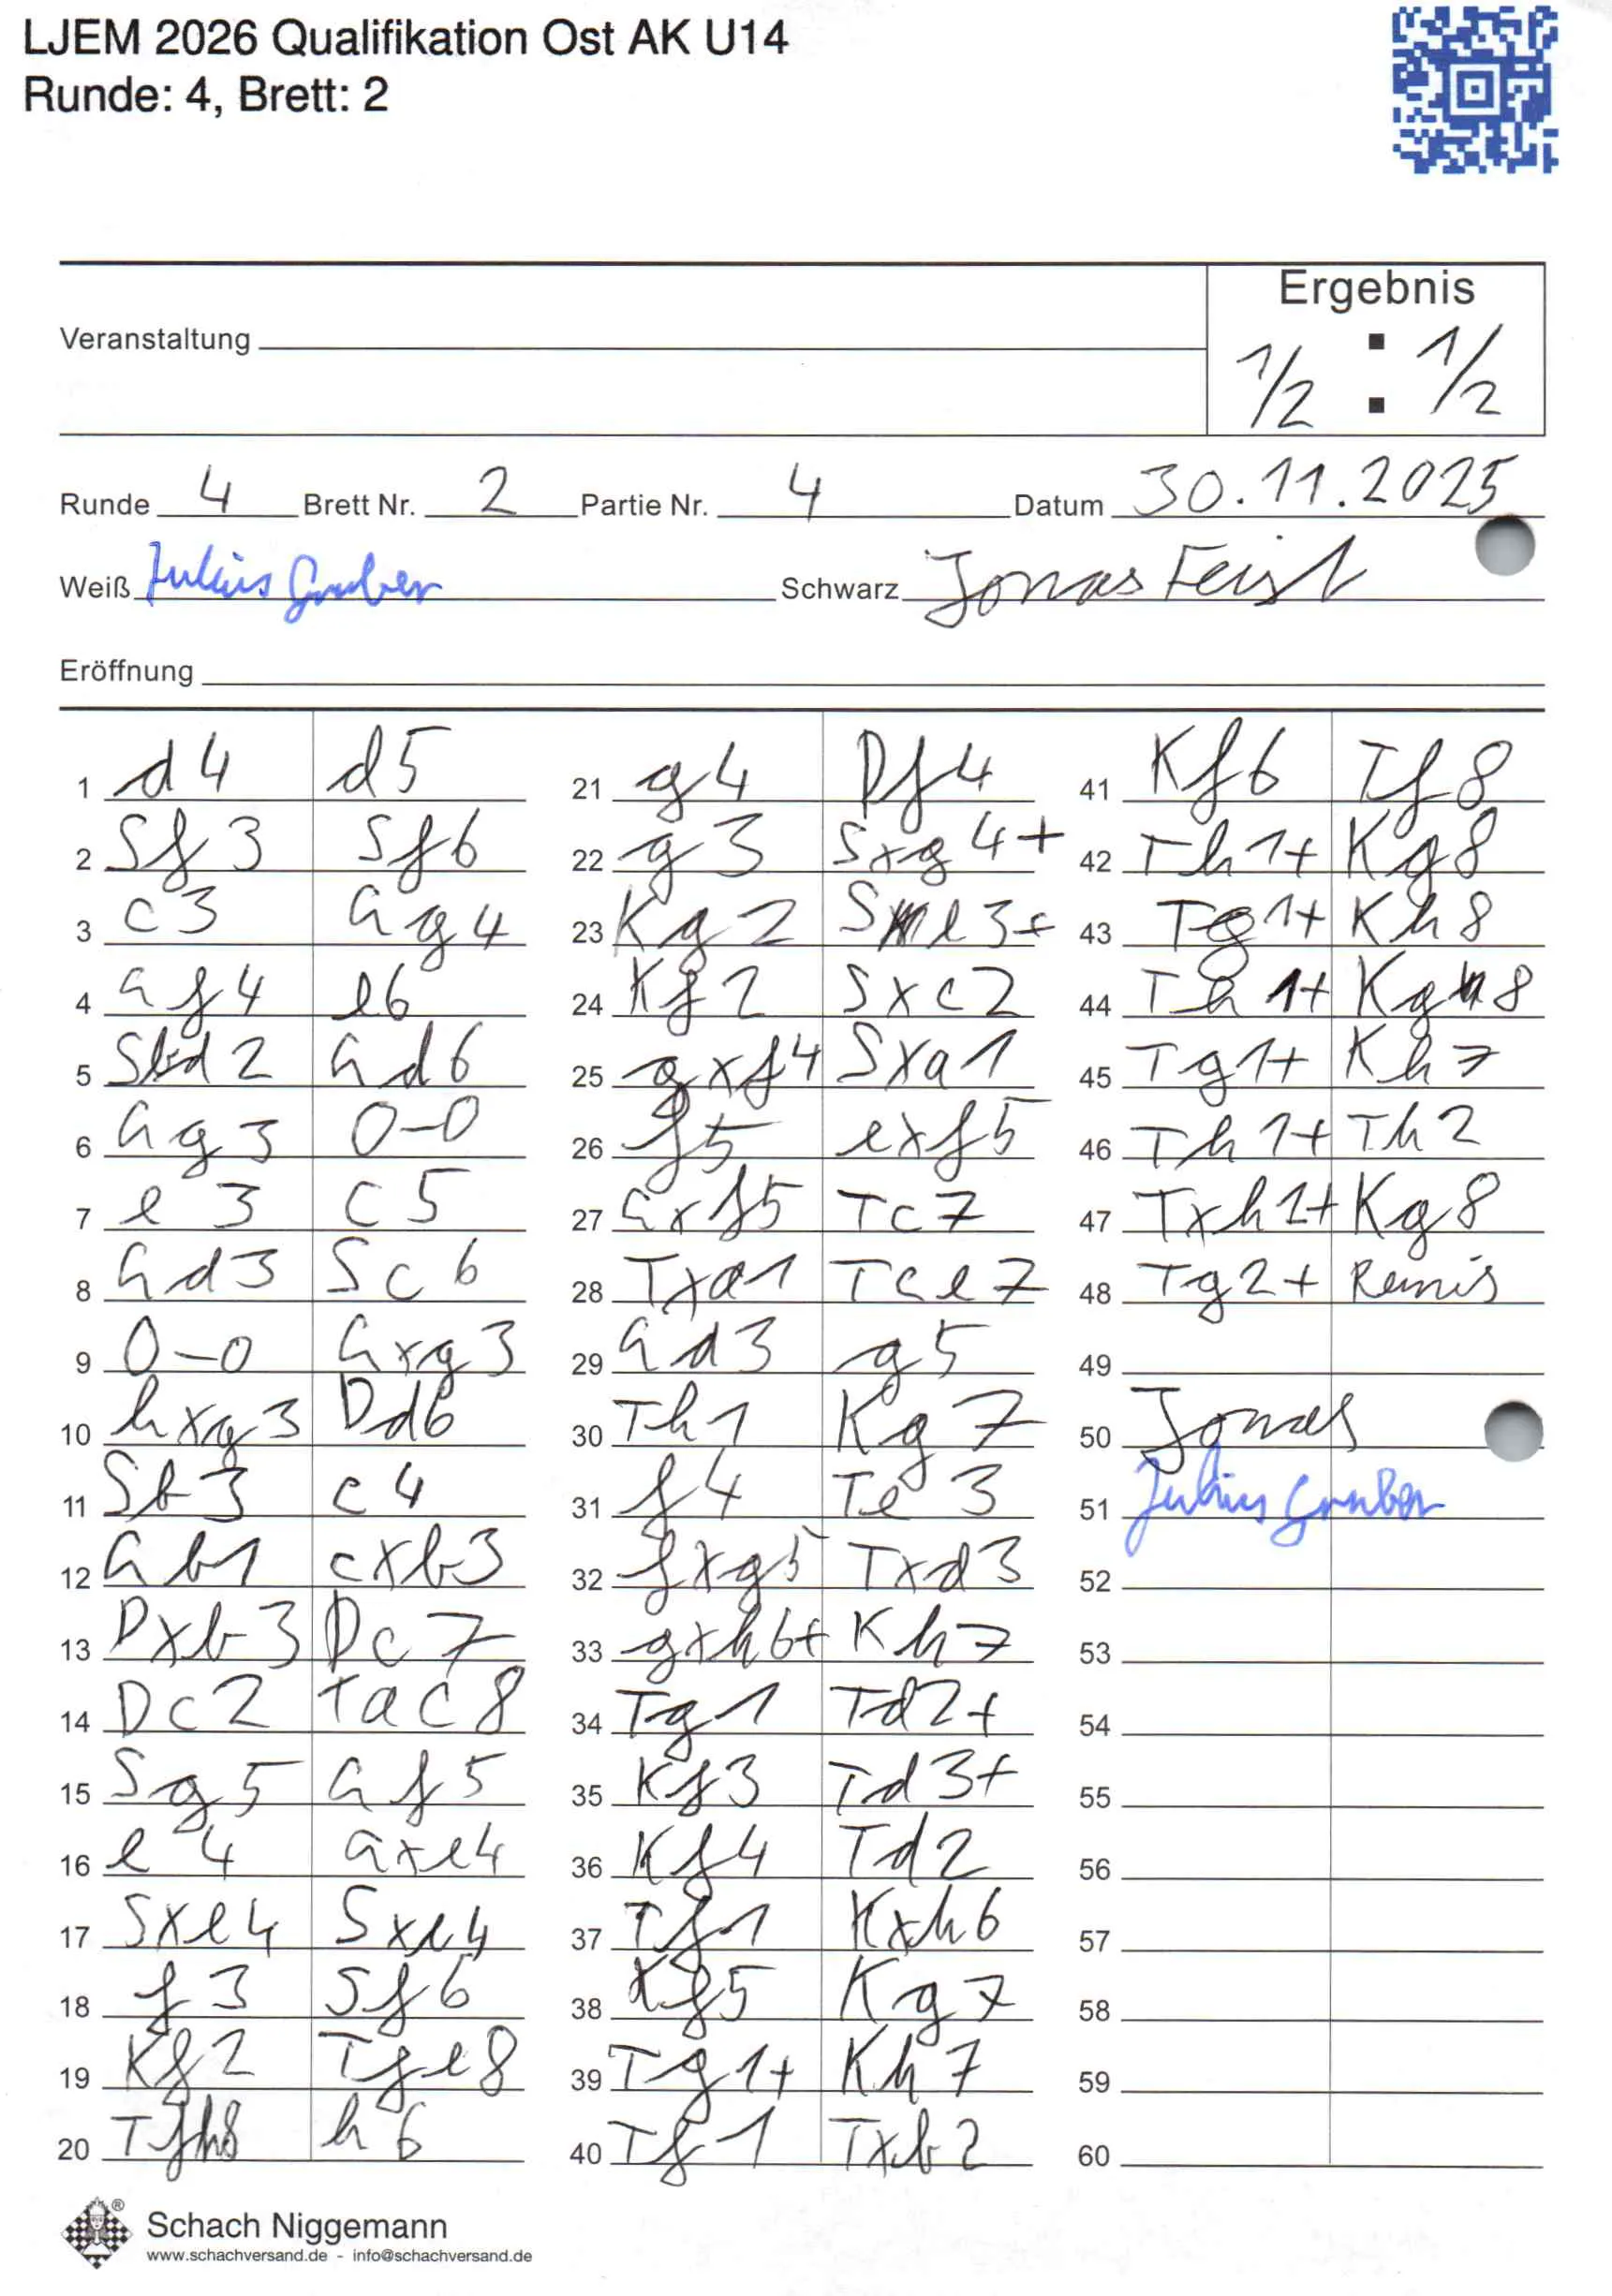 LJEM 2026 Qualifikation Ost AK U14
Runde: 4, Brett: 2
Ergebnis
Veranstaltung
1/2 : 1/2
Runde 4 Brett Nr. 2 Partie Nr. 4 Datum 30.11.2025
Weiß Julius Gruber Schwarz Jonas Feist
Eröffnung
1 d4 d5
2 Sf3 Sf6
3 c3 Lg4
4 Lf4 e6
5 Sbd2 Ld6
6 Lg3 0-0
7 e3 c5
8 Ld3 Sc6
9 0-0 Lxg3
10 hxg3 Dd6
11 Sb3 c4
12 Lb1 cxb3
13 Dxb3 Dc7
14 Dc2 Tac8
15 Sg5 Lf5
16 e4 Lxe4
17 Sxe4 Sxe4
18 f3 Sf6
19 Kf2 Tfe8
20 h6
21 g4 Df4
22 g3 Sxg4+
23 Kg2 Se3+
24 Kf2 Sxc2
25 gxf4 Sxa1
26 f5 exf5
27 Lxf5 Tc7
28 Txa1 Tce7
29 Ld3 g5
30 Th1 Kg7
31 f4 Te3
32 fxg5 Txd3
33 gxh6+ Kh7
34 Tg1 Td2+
35 Kf3 Td3+
36 Kf4 Td2
37 Tf1 Kxh6
38 Kf5 Kg7
39 Tg1+ Kh7
40 Tf1 Txb2
41 Kf6 Tf8
42 Th1+ Kg8
43 Tg1+ Kh8
44 Th1+ Kg8
45 Tg1+ Kh7
46 Th1+ Th2
47 Txh1+ Kg8
48 Tg2+ Remis
49
50 Jonas
51 Julius Gruber
52
53
54
55
56
57
58
59
60
®
Schach Niggemann
www.schachversand.de - info@schachversand.de